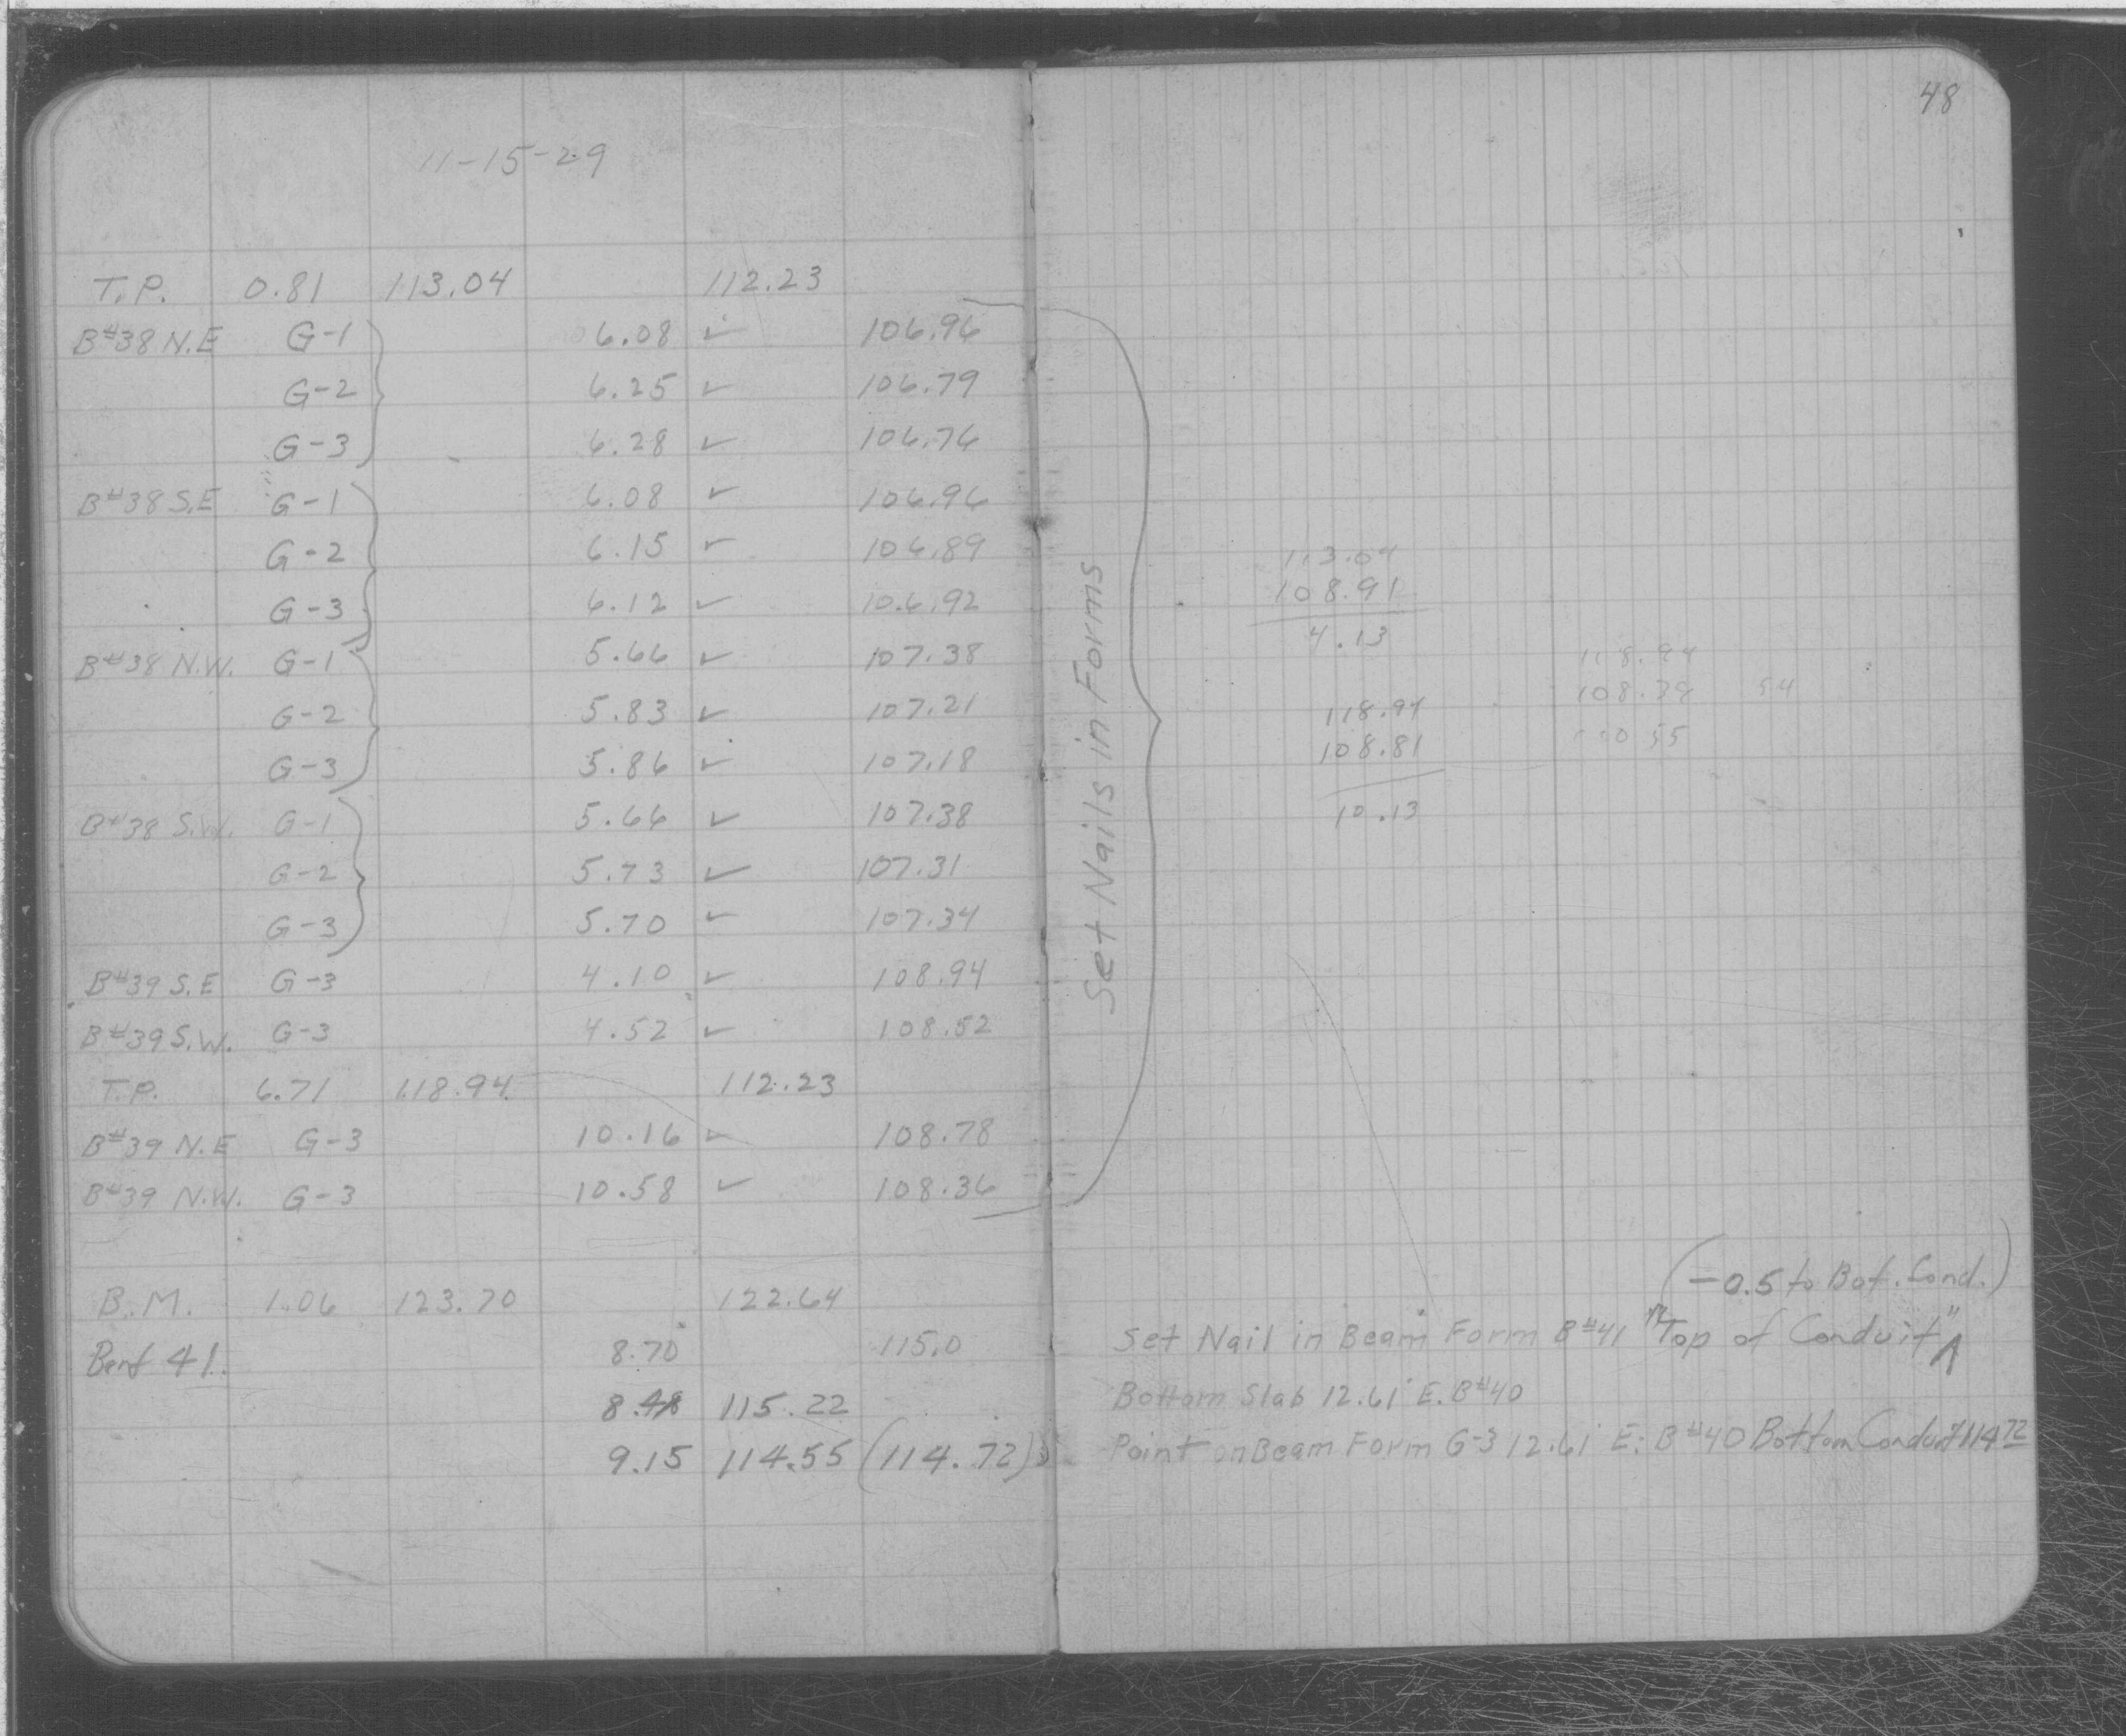 48
11-15-29
T.P. 0.81 113.04 112.23
B#38 N.E G-1 6.08 ✓ 106.96
G-2 6.25 ✓ 106.79
G-3 6.28 ✓ 106.76
B#38 S.E G-1 6.08 ✓ 106.96
G-2 6.15 ✓ 106.89
G-3 6.12 ✓ 106.92
B#38 N.W. G-1 5.66 ✓ 107.38
G-2 5.83 ✓ 107.21
G-3 5.86 ✓ 107.18
B#38 S.W. G-1 5.66 ✓ 107.38
G-2 5.73 ✓ 107.31
G-3 5.70 ✓ 107.34
B#39 S.E G-3 4.10 ✓ 108.94
B#39 S.W. G-3 4.52 ✓ 108.52
T.P. 6.71 118.94 112.23
B#39 N.E G-3 10.16 ✓ 108.78
B#39 N.W. G-3 10.58 ✓ 108.36
B.M. 1.06 123.70 122.64
Bent 41. 8.70 115.0
8.48 115.22
9.15 114.55 (114.72)
Set Nails in Forms
113.04
108.91
4.13
118.94
108.81
10.13
118.94
108.79 54
(-0.5 to Bot. Cond.)
Set Nail in Beam Form B#41 "Top of Conduit"
Bottom Slab 12.61' E. B#40
Point on Beam Form G-3 12.61' E. B#40 Bottom Conduit 114.72